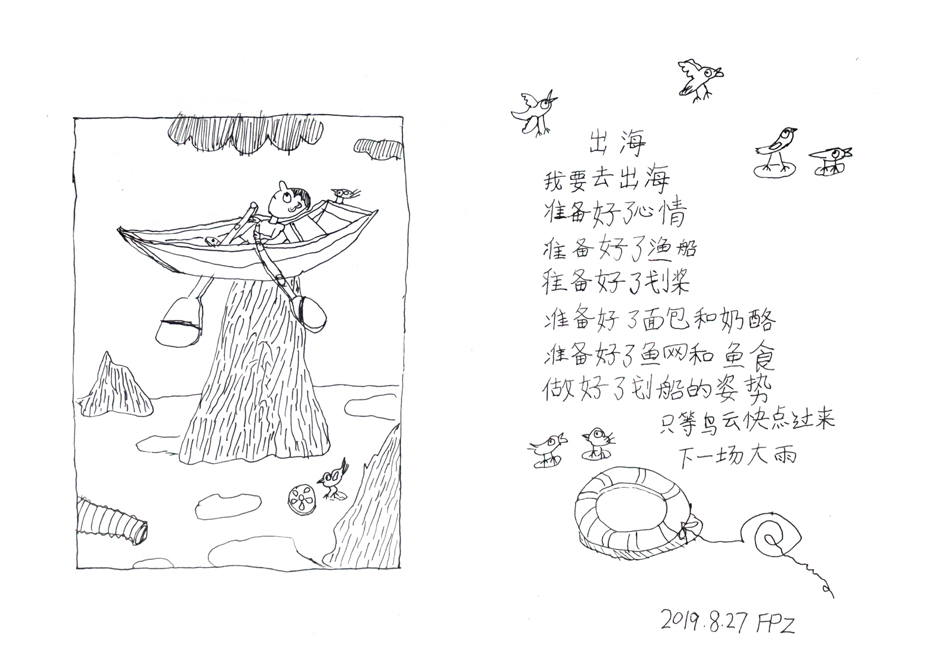 出海
我要去出海
准备好了心情
准备好了渔船
准备好了划桨
准备好了面包和奶酪
准备好了鱼网和鱼食
做好了划船的姿势
只等鸟云快点过来
下一场大雨
2019.8.27 FPZ